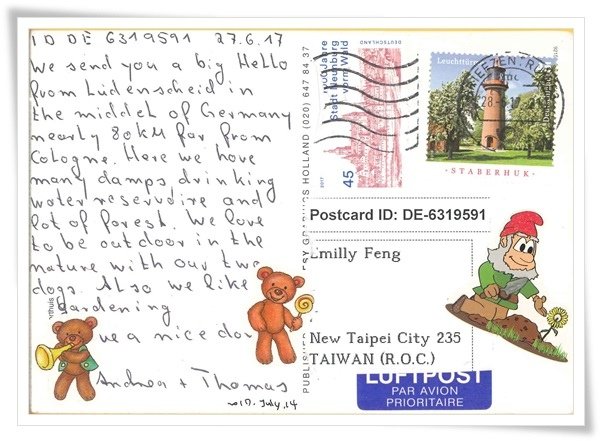 ID DE 6319591 27.6.17
We send you a big Hello
from Lüdenscheid in
the middel of Germany
nearly 80KM far from
Cologne. Here we have
many damps drinking
water reservoire and
lot of forest. We love
to be outdoor in the
nature with our two
dogs. Also we like
gardening
ve a nice da
Andrea + Thomas
2017. July. 14
HOLLAND (020) 647 84 37
Stadt Neunburg
vorm Wald
DEUTSCHLAND
2017
45
Leuchtturm
STABERHUK
Postcard ID: DE-6319591
Emilly Feng
New Taipei City 235
TAIWAN (R.O.C.)
LUFTPOST
PAR AVION
PRIORITAIRE